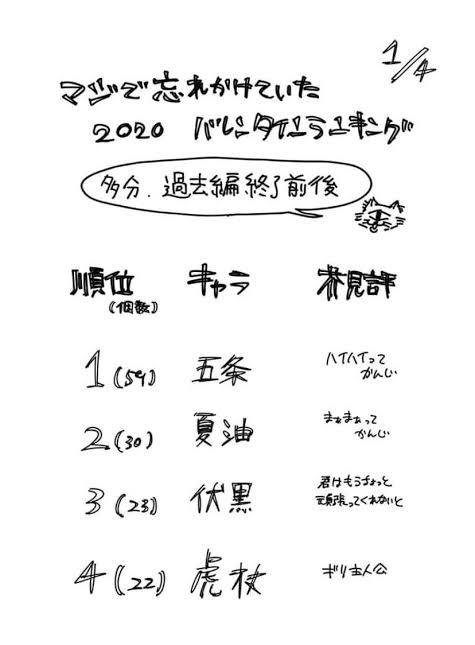 1/4
マジで忘れかけていた
2020 バレンタインランキング
多分、過去編終了前後
順位 キャラ 芥見評
(個数)
1(59) 五条 ハイハイって
かんじ
2(30) 夏油 まぁまぁって
かんじ
3(23) 伏黒 君はもうちょっと
頑張ってくれないと
4(22) 虎杖 ギリ主人公